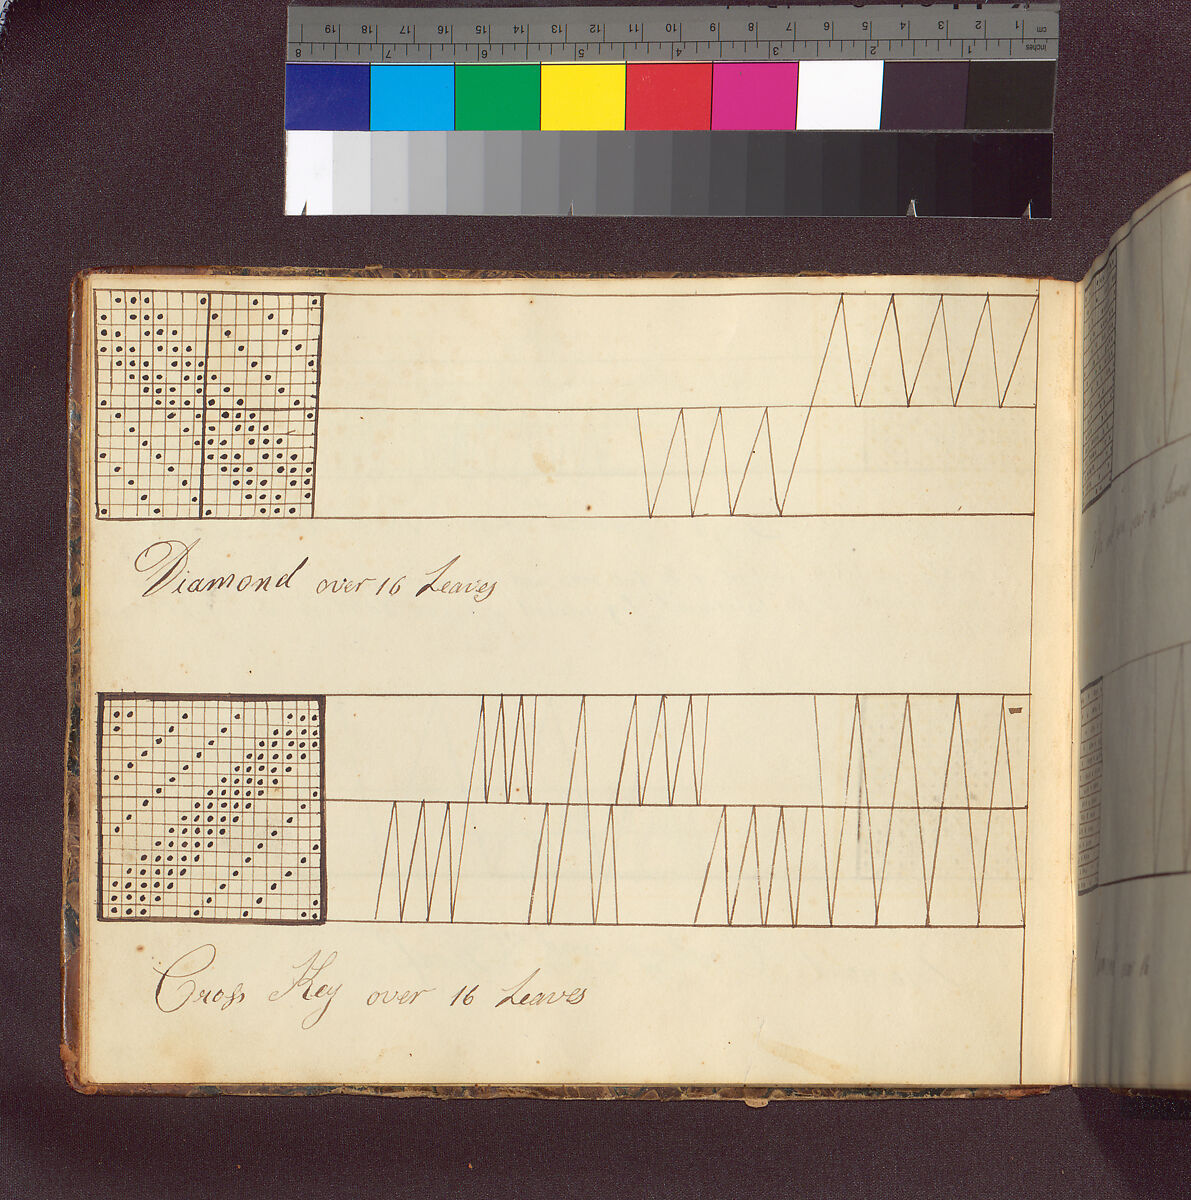 Diamond over 16 Leaves
Cross Key over 16 Leaves
cm 1 2 3 4 5 6 7 8 9 10 11 12 13 14 15 16 17 18 19
inches 1 2 3 4 5 6 7 8